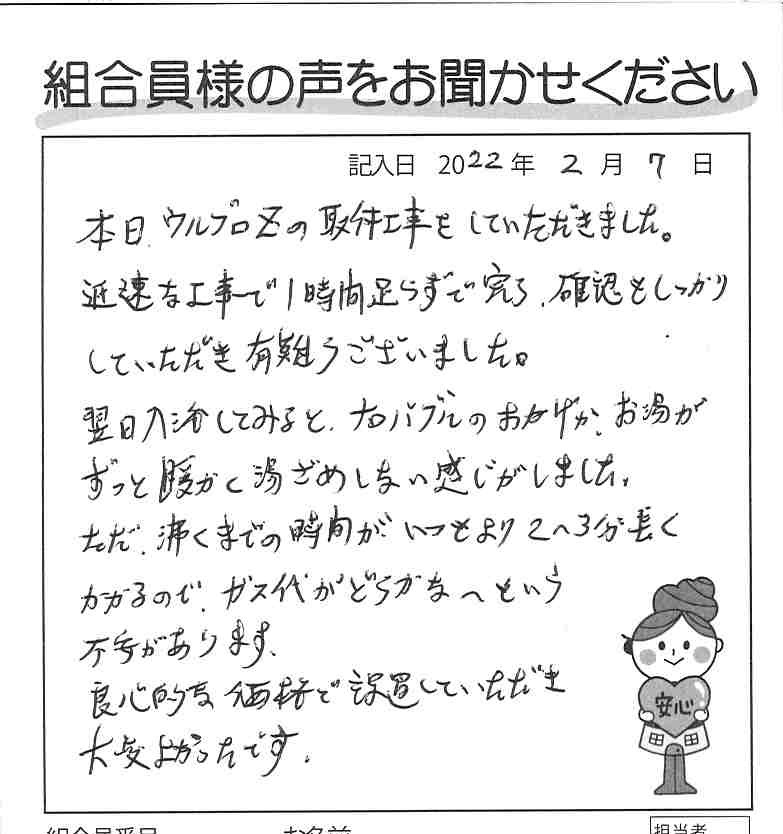 組合員様の声をお聞かせください
記入日 2022年 2月 7日
本日、ウルブロZの取付工事をしていただきました。
迅速な工事で1時間足らずで完了、確認もしっかり
していただき有難うございました。
翌日入浴してみると、ナノバブルのおかげか、お湯が
ずっと暖かく湯ざめしない感じがしました。
ただ、沸くまでの時間が、いつもより2〜3分長く
かかるので、ガス代がどうかな〜という
不安があります。
良心的な価格で設置していただき
大変よかったです。
安心
組合員番号 お名前 担当者